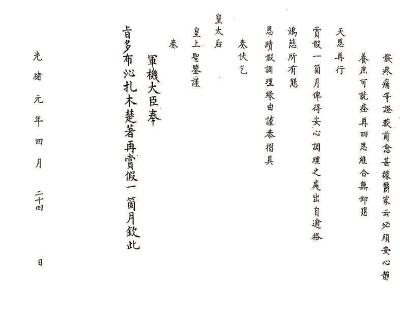 養庶可就痊再四思維合無仰懇
天恩再行
賞假一箇月俾得安心調理之處出自逾格
鴻慈所有懇
恩續假調理緣由謹恭摺具
奏伏乞
皇太后
皇上聖鑒謹
奏
軍機大臣奉
旨多布沁扎木楚著再賞假一箇月欽此
光緒元年四月二十四日